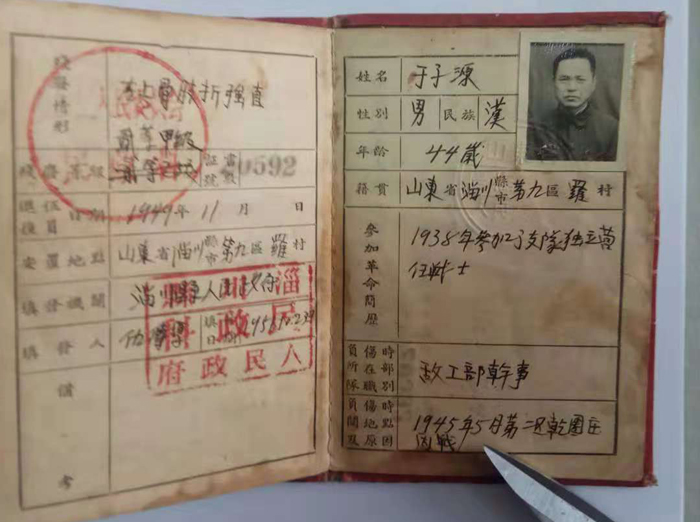 殘廢情形
右上骨肱折强直
貳等甲級
殘廢等級
證書號數
0592
退伍復員日期
1949年11月 日
安置地點
山東省淄川縣市第九區羅村
填發機關
淄川縣人民政府
填發人
填發日期
備考
淄川縣
民政科
人民政府
姓名 于子源
性别 男 民族 漢
年齡 44歲
籍貫 山東省淄川縣市第九區羅村
參加革命簡歷
1938年參加了支隊独立营
任战士
負傷時所在部隊職别
敌工部幹事
負傷時間地點及原因
1945年5月第二次乾團庄
因戰